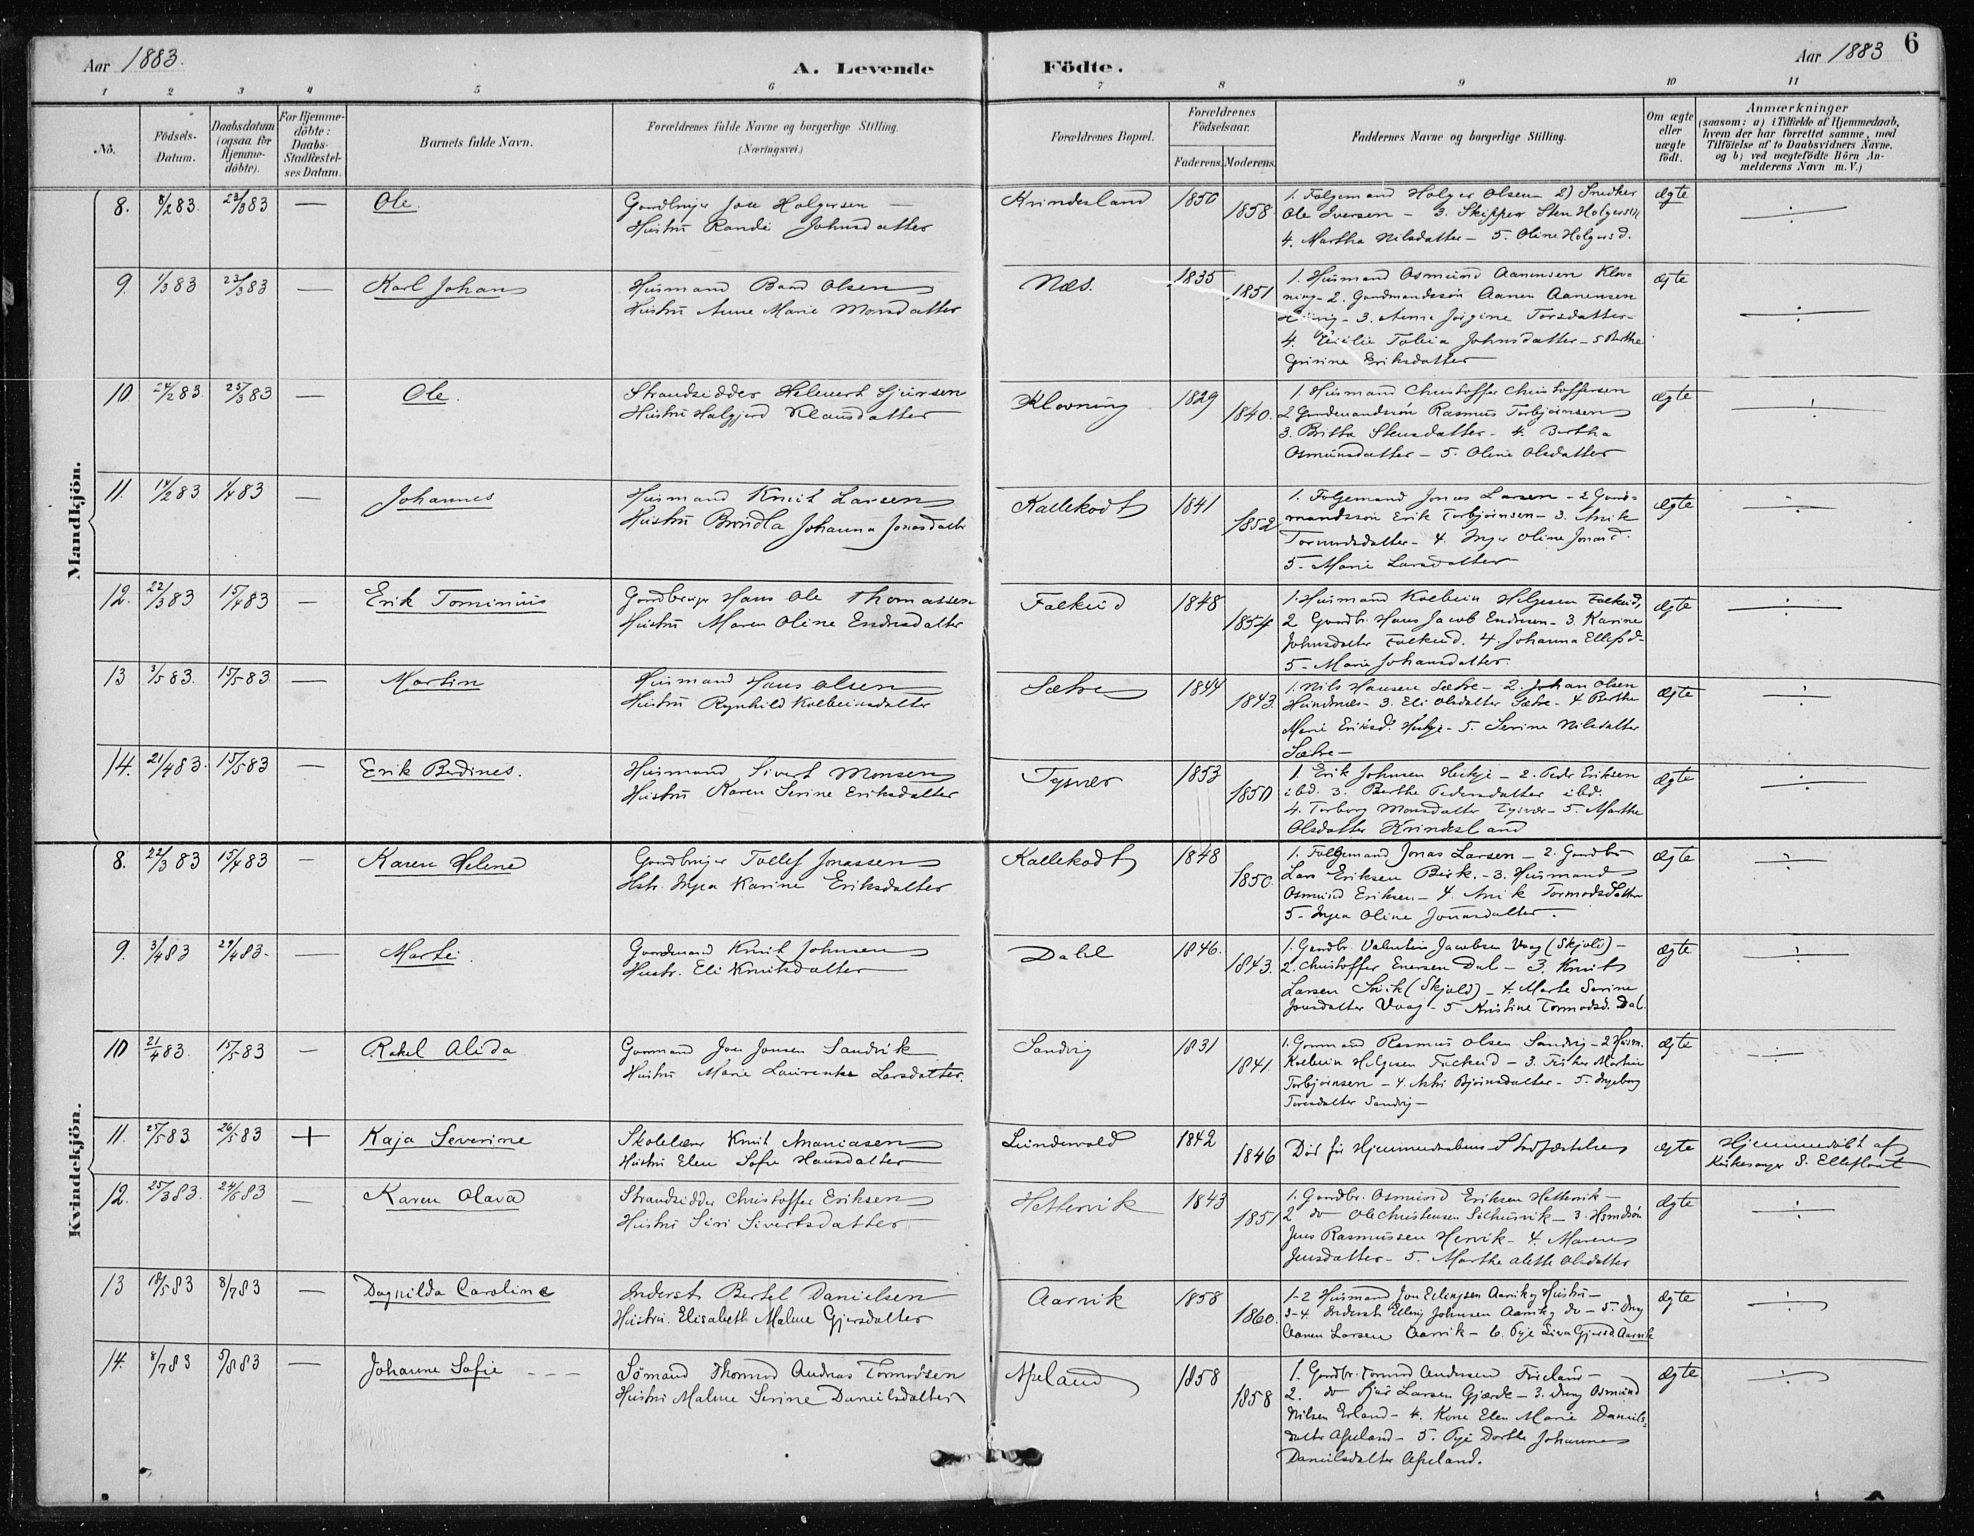 Aar 1883.
A. Levende Födte.
Aar 1883
6
1 2 3 4 5 6 7 8 9 10 11
No.
Födsels-
Datum.
Daabsdatum
(ogsaa for
Hjemme-
döbte).
For Hjemme-
döbte:
Daabs-
Stadfæstel-
ses Datum.
Barnets fulde Navn.
Forældrenes fulde Navne og borgerlige Stilling.
(Næringsvei.)
Forældrenes Bopæl.
Forældrenes
Födselsaar.
Faderens. Moderens.
Faddernes Navne og borgerlige Stilling.
Om ægte
eller
uægte
födt.
Anmærkninger
(saasom: a) i Tilfælde af Hjemmedaab,
hvem der har forrettet samme, med
Tilföielse af to Daabsvidners Navne,
og b) ved uægtefödte Börn An-
melderens Navn m. V.)
Mandkjön.
8. 8/2 83. 23/3 83 — Ole
Gaardbruger Jon Holgersen —
Hustru Randi Johnsdatter
Krindesland 1850 1858
1. Folgemand Holger Olsen — 2) Snedker
Ole Iversen — 3. Skipper Sten Holgersen
4. Martha Nilsdatter — 5. Oline Holgersd.
ægte
9. 1/3 83 23/3 83 — Karl Johan
Husmand Baard Olsen
Hustru Anne Marie Monsdatter
Næs. 1835 1851
1. Husmand Osmund Aanensen Klov-
ning — 2. Gaardmandssön Aanen Aanensen
— 3. Anne Jörgine Torsdatter —
4. Cecilie Tolia Johnsdatter — 5 Berthe
Eriksdatter
ægte
10 24/2 83. 25/3 83 — Ole.
Strandsidder Helmert Gjursen
Hustru Halgjerd Klausdatter
Klovning 1829 1840.
1. Husmand Christoffer Christoffersen
2 Gaardmandssön Rasmus Torbjörnsen
3. Britta Stensdatter — 4. Bertha
Osmundsdatter — 5. Oline Olsdatter
ægte
11. 14/2 83 1/4 83 — Johannes
Husmand Knut Larsen
Hustru Brindla Johanna Jonasdatter
Kallekodt 1841 1852
1. Folgemand Jonas Larsen — 2 Gaard-
mandssön Erik Torbjörnsen — 3. Anik
Tormodsdatter — 4. Inger Oline Jonasd.
5. Marie Larsdatter
ægte
12. 22/3 83 15/4 83 — Erik Tominius
Gaardbruger Hans Ole Thomassen
Hustru Maren Oline Endresdatter
Falkeid 1848 1854
1. Husmand Kolbein Helgesen Falkeid,
2 Gaardbr. Hans Jacob Endresen — 3. Karine
Johnsdatter Falkeid. 4. Johanna Ellefsd.
5. Marie Johansdatter.
ægte
13 3/5 83. 15/5 83 — Martin
Husmand Hans Olsen
Hustru Rynhild Kolbeinsdatter
Sætre 1844 1843.
1. Nils Hansen Sætre — 2. Johan Olsen
Hundnes — 3. Eli Olsdatter Sætre — 4 Berthe
Marie Eriksd. — 5. Serine Nilsdatter
Sætre —
ægte
14. 21/4 83. 15/5 83 — Erik Berdines.
Husmand Sivert Monsen
Hustru Karen Serine Eriksdatter
Tysvær 1853 1850
1. Erik Johnsen — 2. Peder Eriksen
ibd. 3. Berthe Pedersdatter ibd.
4. Torborg Monsdatter Tysvær — 5. Marthe
Olsdatter Krindesland
ægte
Kvindekjön.
8. 22/3 83 15/4 83 — Karen Helene
Gaardbruger Tollef Jonassen
Hstr. Inga Karine Eriksdatter
Kallekodt 1848 1850.
1. Folgemand Jonas Larsen — 2. Gaardbr
Lars Eriksen Birk. — 3. Husmand
Osmund Eriksen — 4. Anik Tormodsdatter
5. Inga Oline Jonasdatter.
ægte
9. 3/4 83 29/4 83. — Marta.
Gaardmand Knut Johnsen
Hustr. Eli Knutsdatter
Dahl 1846. 1843.
1. Gaardbr. Valentin Jacobsen Vaag (Skjold) —
2. Christoffer Enersen Dal — 3. Knut
Larsen (Skjold) — 4. Marte Serine
Jonsdatter Vaag — 5 Kristine Tormodsd. Dal
ægte
10 21/4 83. 15/5 83 — Rakel Alida
Gaarmand Jon Jonsen Sandvik
Hustru Marie Laurentse Larsdatter.
Sandvig 1831 1841.
1. Gaarmand Rasmus Olsen Sandvig — 2 Husm.
Kolbein Helgesen Falkeid — 3.
Torbjörnsen — 4. Björnsdatter — 5. Ingeborg
Toresdatter Sandvig —
ægte
11. 25/5 83. 26/5 83 + Kaja Severine
Skolelærer Knut Ananiasen
Hustru Elen Sofie Hansdatter
Leindevold 1842 1846
Död för Hjemmedaabens Stadfæstelse
ægte
Hjemmedöbt af
Kirkesanger S. Elleflaat
12. 25/3 83. 24/6 83 — Karen Olava
Strandsidder Christoffer Eriksen
Hustru Siri Sivertsdatter
Hettervik 1843 1851
1. Gaardbr. Osmund Eriksen Hettervik —
2 do Ole Christensen — 3. Hsmdsön
Jens Rasmussen Hervik — 4. Maren
Jensdatter — 5. Marthe Alette Olsdatter
ægte
13 18/5 83 8/7 83 — Dagnilda Caroline
Inderst Bertel Danielsen
Hustru. Elisabeth Malene Gjersdatter
Aarvik 1858 1860.
1-2 Husmand Jon Erlingsen Aarvik og Hustru —
3-4 Inderst Elling Johnsen Aarvik og do — 5. Ung
Aanen Larsen Aarvik — 6. Pige Siva Gjersd. Aarvik
ægte
14. 8/7 83 5/8 83 — Johanne Sofie
Sömand Thormod Andreas Tormodsen
Hustru Malene Serine Danielsdatter
Apeland 1858 1858
1. Gaardbr. Tormod Andersen —
2. do Larsen Gjærde — 3. Ung Osmund
Nilsen Erland — 4. Kone Elen Marie Daniels-
datter Apeland — 5. Pige Dorthe Johanne
Danielsdatter Apeland.
ægte